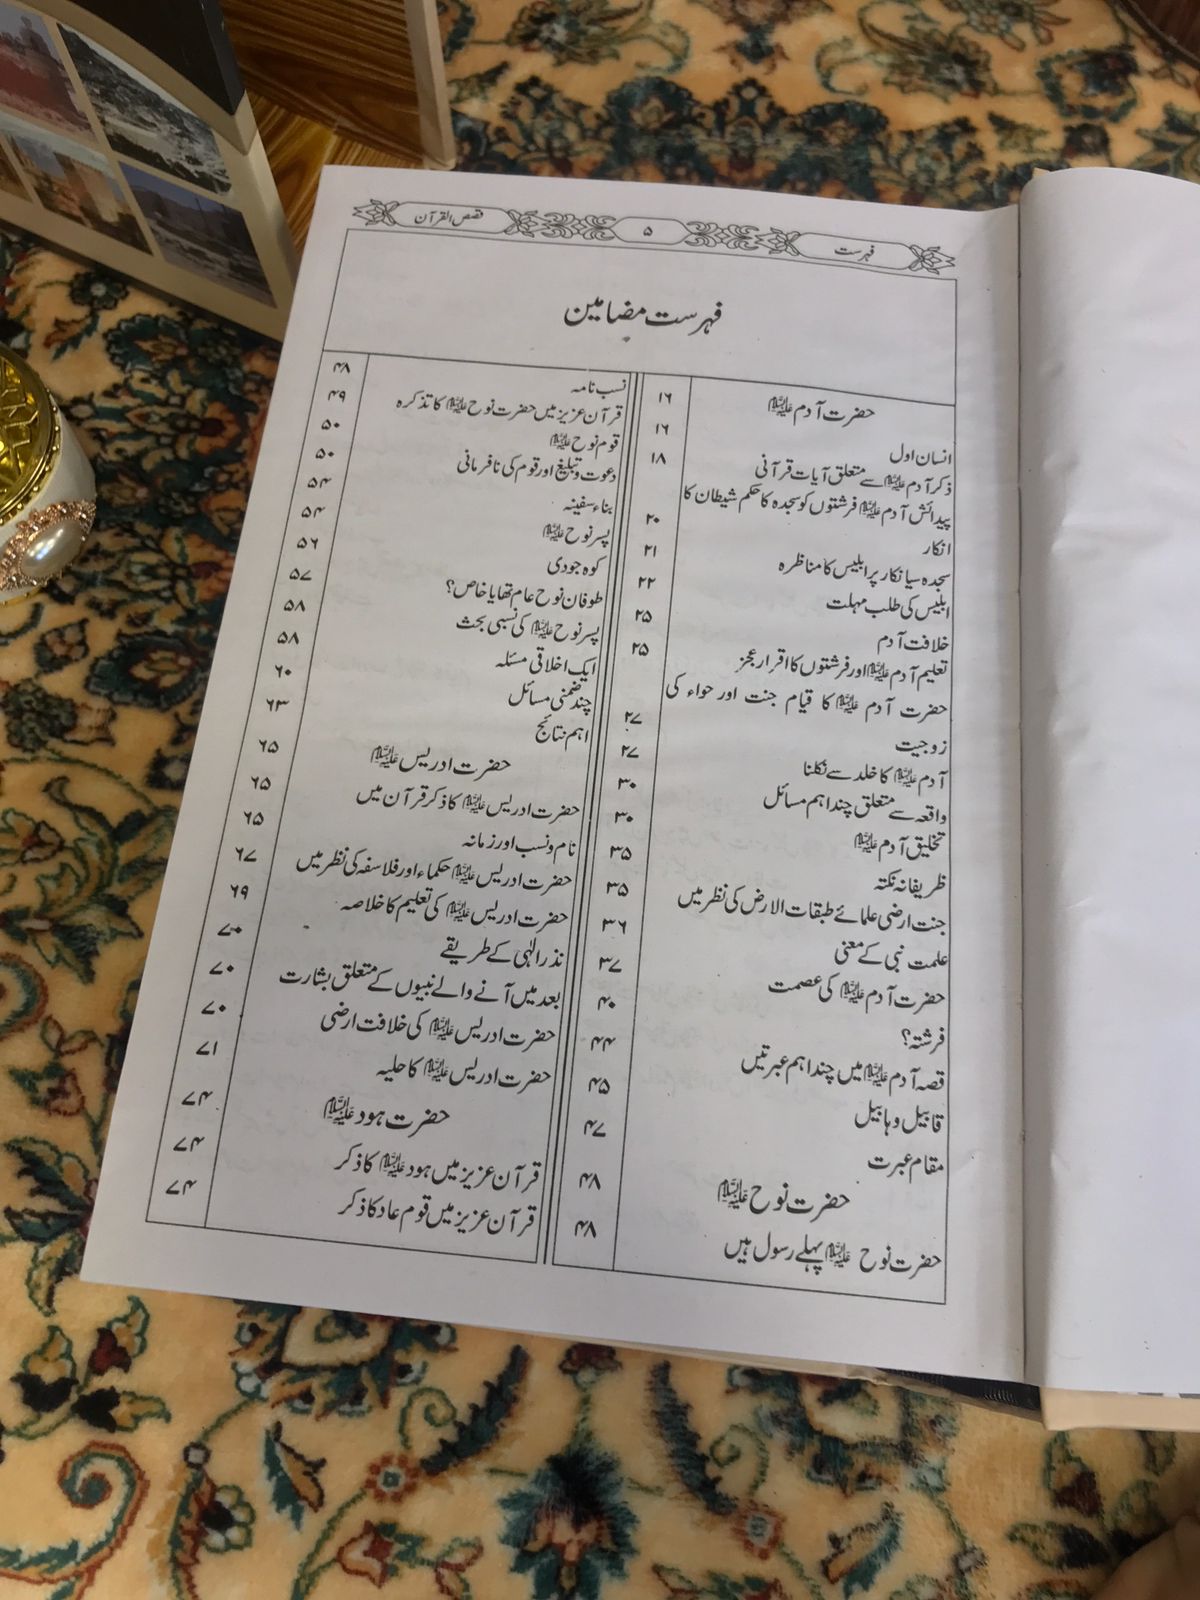 فہرست
۵
قصص القرآن
فہرست مضامین
حضرت آدم علیہ السلام ۱۶
انسان اول ۱۶
ذکر آدم علیہ السلام سے متعلق آیات قرآنی ۱۸
پیدائش آدم علیہ السلام فرشتوں کو سجدہ کا حکم شیطان کا
انکار ۲۰
سجدہ سیانکار پر ابلیس کا مناظرہ ۲۱
ابلیس کی طلب مہلت ۲۲
خلافت آدم ۲۵
تعلیم آدم علیہ السلام اور فرشتوں کا اقرار عجز ۲۵
حضرت آدم علیہ السلام کا قیام جنت اور حواء کی
زوجیت ۲۷
آدم علیہ السلام کا خلد سے نکلنا ۲۷
واقعہ سے متعلق چند اہم مسائل ۳۰
تخلیق آدم علیہ السلام ۳۰
ظریفانہ نکتہ ۳۵
جنت ارضی علمائے طبقات الارض کی نظر میں ۳۵
علمت نبی کے معنی ۳۶
حضرت آدم علیہ السلام کی عصمت ۳۷
فرشتہ؟ ۴۰
قصہ آدم علیہ السلام میں چند اہم عبرتیں ۴۴
قابیل و ہابیل ۴۵
مقام عبرت ۴۷
حضرت نوح علیہ السلام ۴۸
حضرت نوح علیہ السلام پہلے رسول ہیں ۴۸
نسب نامہ ۴۸
قرآن عزیز میں حضرت نوح علیہ السلام کا تذکرہ ۴۹
قوم نوح علیہ السلام ۵۰
دعوت و تبلیغ اور قوم کی نافرمانی ۵۰
بناء سفینہ ۵۴
پسر نوح علیہ السلام ۵۴
کوہ جودی ۵۶
طوفان نوح عام تھا یا خاص؟ ۵۷
پسر نوح علیہ السلام کی نسبی بحث ۵۸
ایک اخلاقی مسئلہ ۵۸
چند ضمنی مسائل ۶۰
اہم نتائج ۶۳
حضرت ادریس علیہ السلام ۶۵
حضرت ادریس علیہ السلام کا ذکر قرآن میں ۶۵
نام و نسب اور زمانہ ۶۵
حضرت ادریس علیہ السلام حکماء اور فلاسفہ کی نظر میں ۶۷
حضرت ادریس علیہ السلام کی تعلیم کا خلاصہ ۶۹
نذر الٰہی کے طریقے ۷۰
بعد میں آنے والے نبیوں کے متعلق بشارت ۷۰
حضرت ادریس علیہ السلام کی خلافت ارضی ۷۰
حضرت ادریس علیہ السلام کا حلیہ ۷۱
حضرت ہود علیہ السلام ۷۴
قرآن عزیز میں ہود علیہ السلام کا ذکر ۷۴
قرآن عزیز میں قوم عاد کا ذکر ۷۴